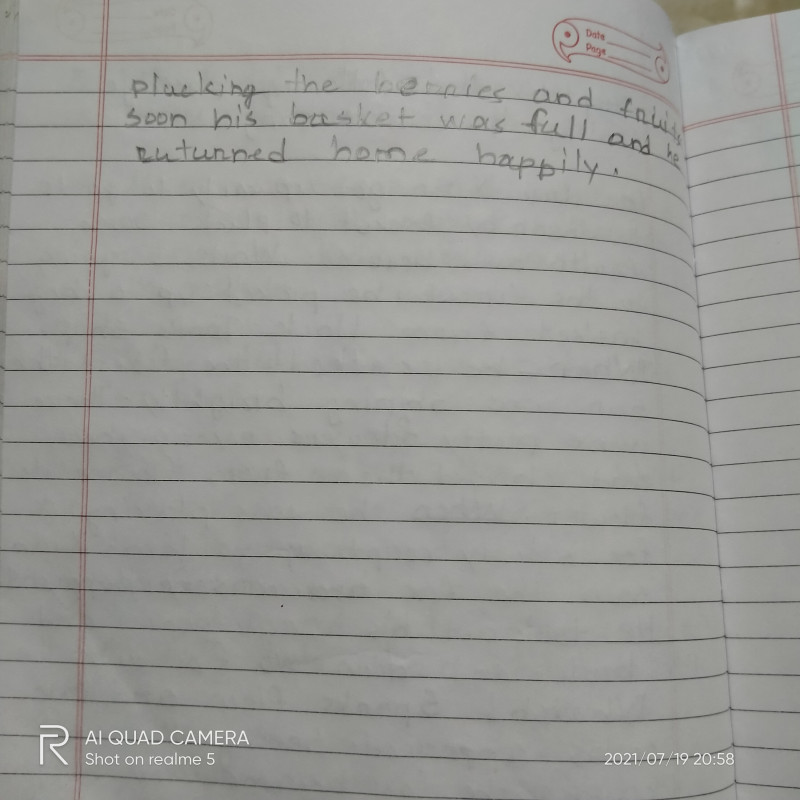 Date
Page
plucking the berries and fruits
soon his basket was full and he
ruturned home happily.
AI QUAD CAMERA
Shot on realme 5
2021/07/19 20:58